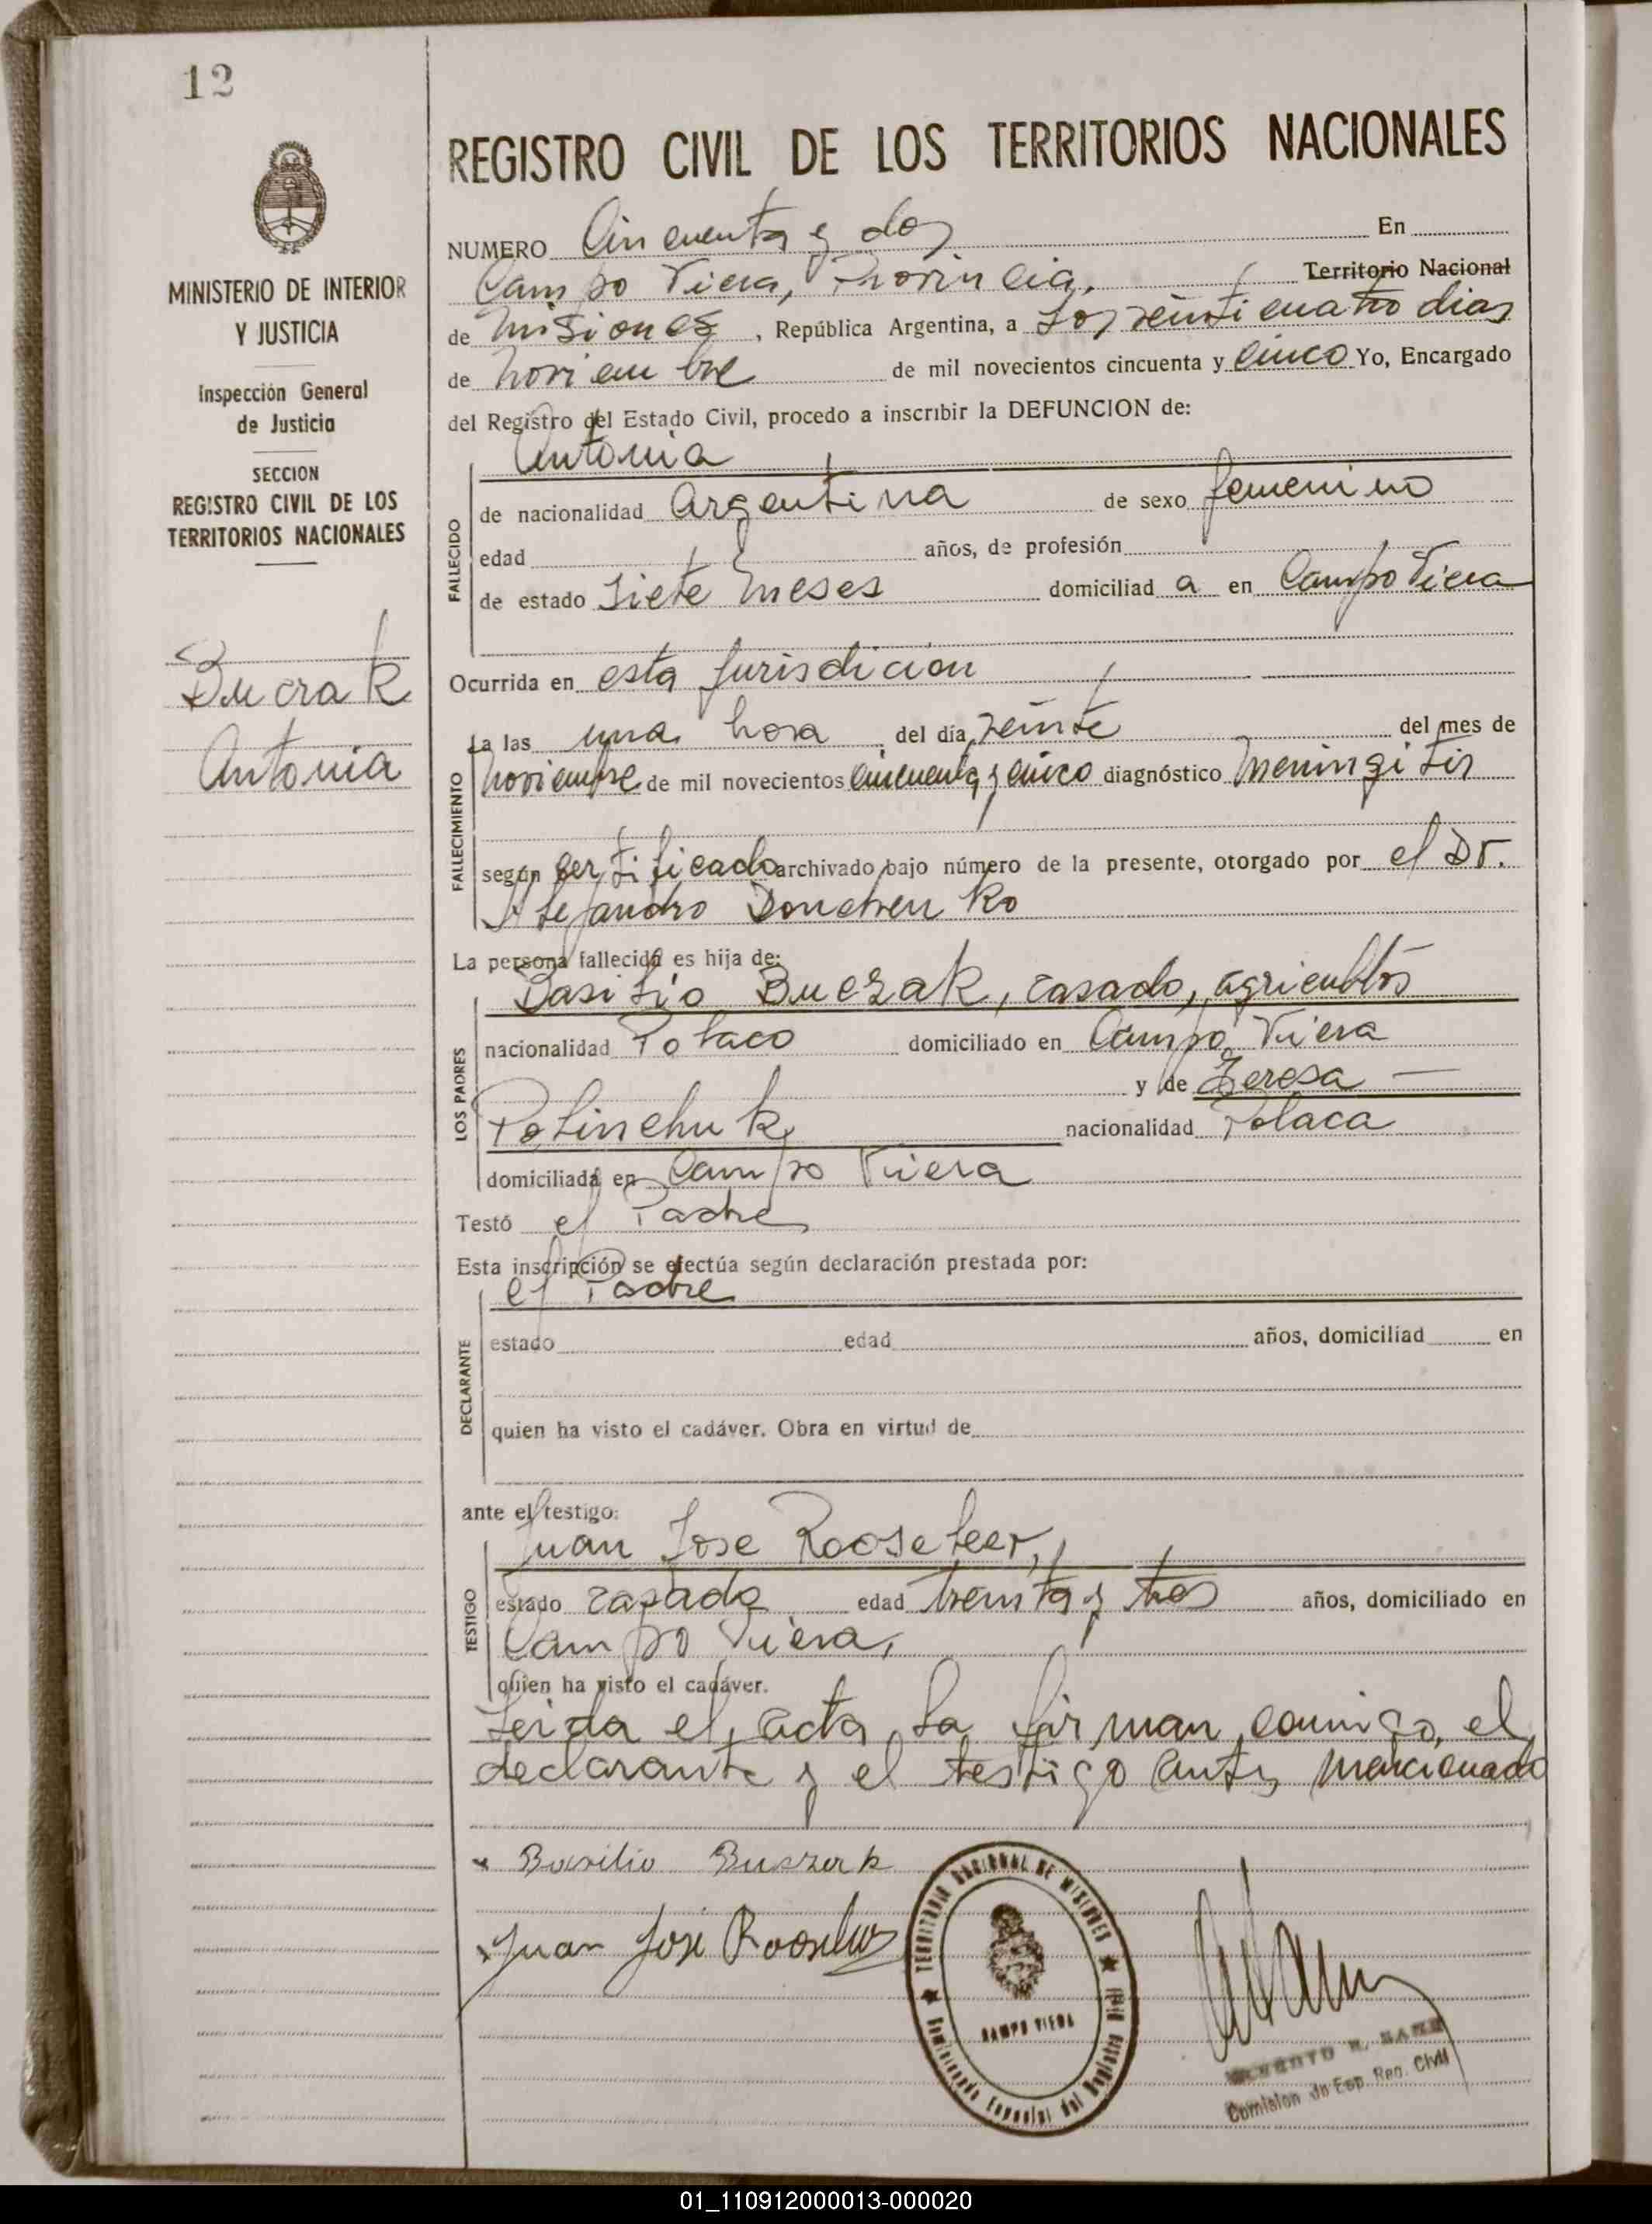 12
MINISTERIO DE INTERIOR
Y JUSTICIA
Inspección General
de Justicia
SECCION
REGISTRO CIVIL DE LOS
TERRITORIOS NACIONALES
52
Bucrak
Antonia
REGISTRO CIVIL DE LOS TERRITORIOS NACIONALES
NUMERO Cincuenta y dos En
Campo Viera, Provincia, Territorio Nacional
de Misiones, República Argentina, a Los veinticuatro dias
de noviembre de mil novecientos cincuenta y cinco Yo, Encargado
del Registro del Estado Civil, procedo a inscribir la DEFUNCION de:
Antonia
FALLECIDO
de nacionalidad Argentina de sexo femenino
edad años, de profesión
de estado siete meses domiciliad a en Campo Viera
Ocurrida en esta Jurisdicion
FALLECIMIENTO
La las una hora del día veinte del mes de
noviembre de mil novecientos cincuenta y cinco diagnóstico Meningitis
según certificado archivado bajo número de la presente, otorgado por el Dr.
Alejandro Donchenko
La persona fallecida es hija de:
LOS PADRES
Basilio Buczak, casado, agricultor
nacionalidad Polaco domiciliado en Campo Viera
y de Teresa —
Polinchuk nacionalidad Polaca
domiciliada en Campo Viera
Testó el Padre
Esta inscripción se efectúa según declaración prestada por:
DECLARANTE
el Padre
estado edad años, domiciliad en
quien ha visto el cadáver. Obra en virtud de
ante el testigo:
TESTIGO
Juan Jose
estado casado edad treinta y tres años, domiciliado en
Campo Viera,
quien ha visto el cadáver.
Leida el acta, la firman conmigo, el
declarante y el testigo antes mencionado
Basilio Buszak
Juan José
TERRITORIO NACIONAL DE MISIONES
CAMPO VIERA
Comision do Esp. Reg. Civil
01_110912000013-000020